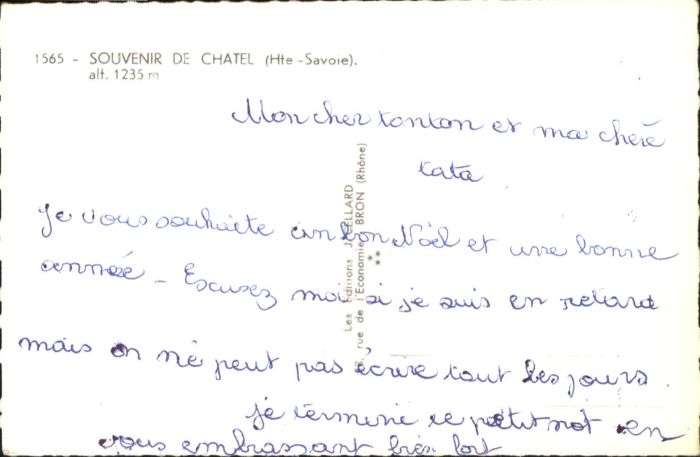 1565 - SOUVENIR DE CHATEL (Hte-Savoie).
alt. 1235 m
Mon cher tonton et ma cheré
tata
Je vous souhaite un bon Noël et une bonne
année - Escusez moi si je suis en retard
mais on né peut pas écrire tout les jours.
je termine ce petit mot en
vous embrassant très fort
Les Editions J. CELLARD
rue de l'Economie BRON (Rhône)